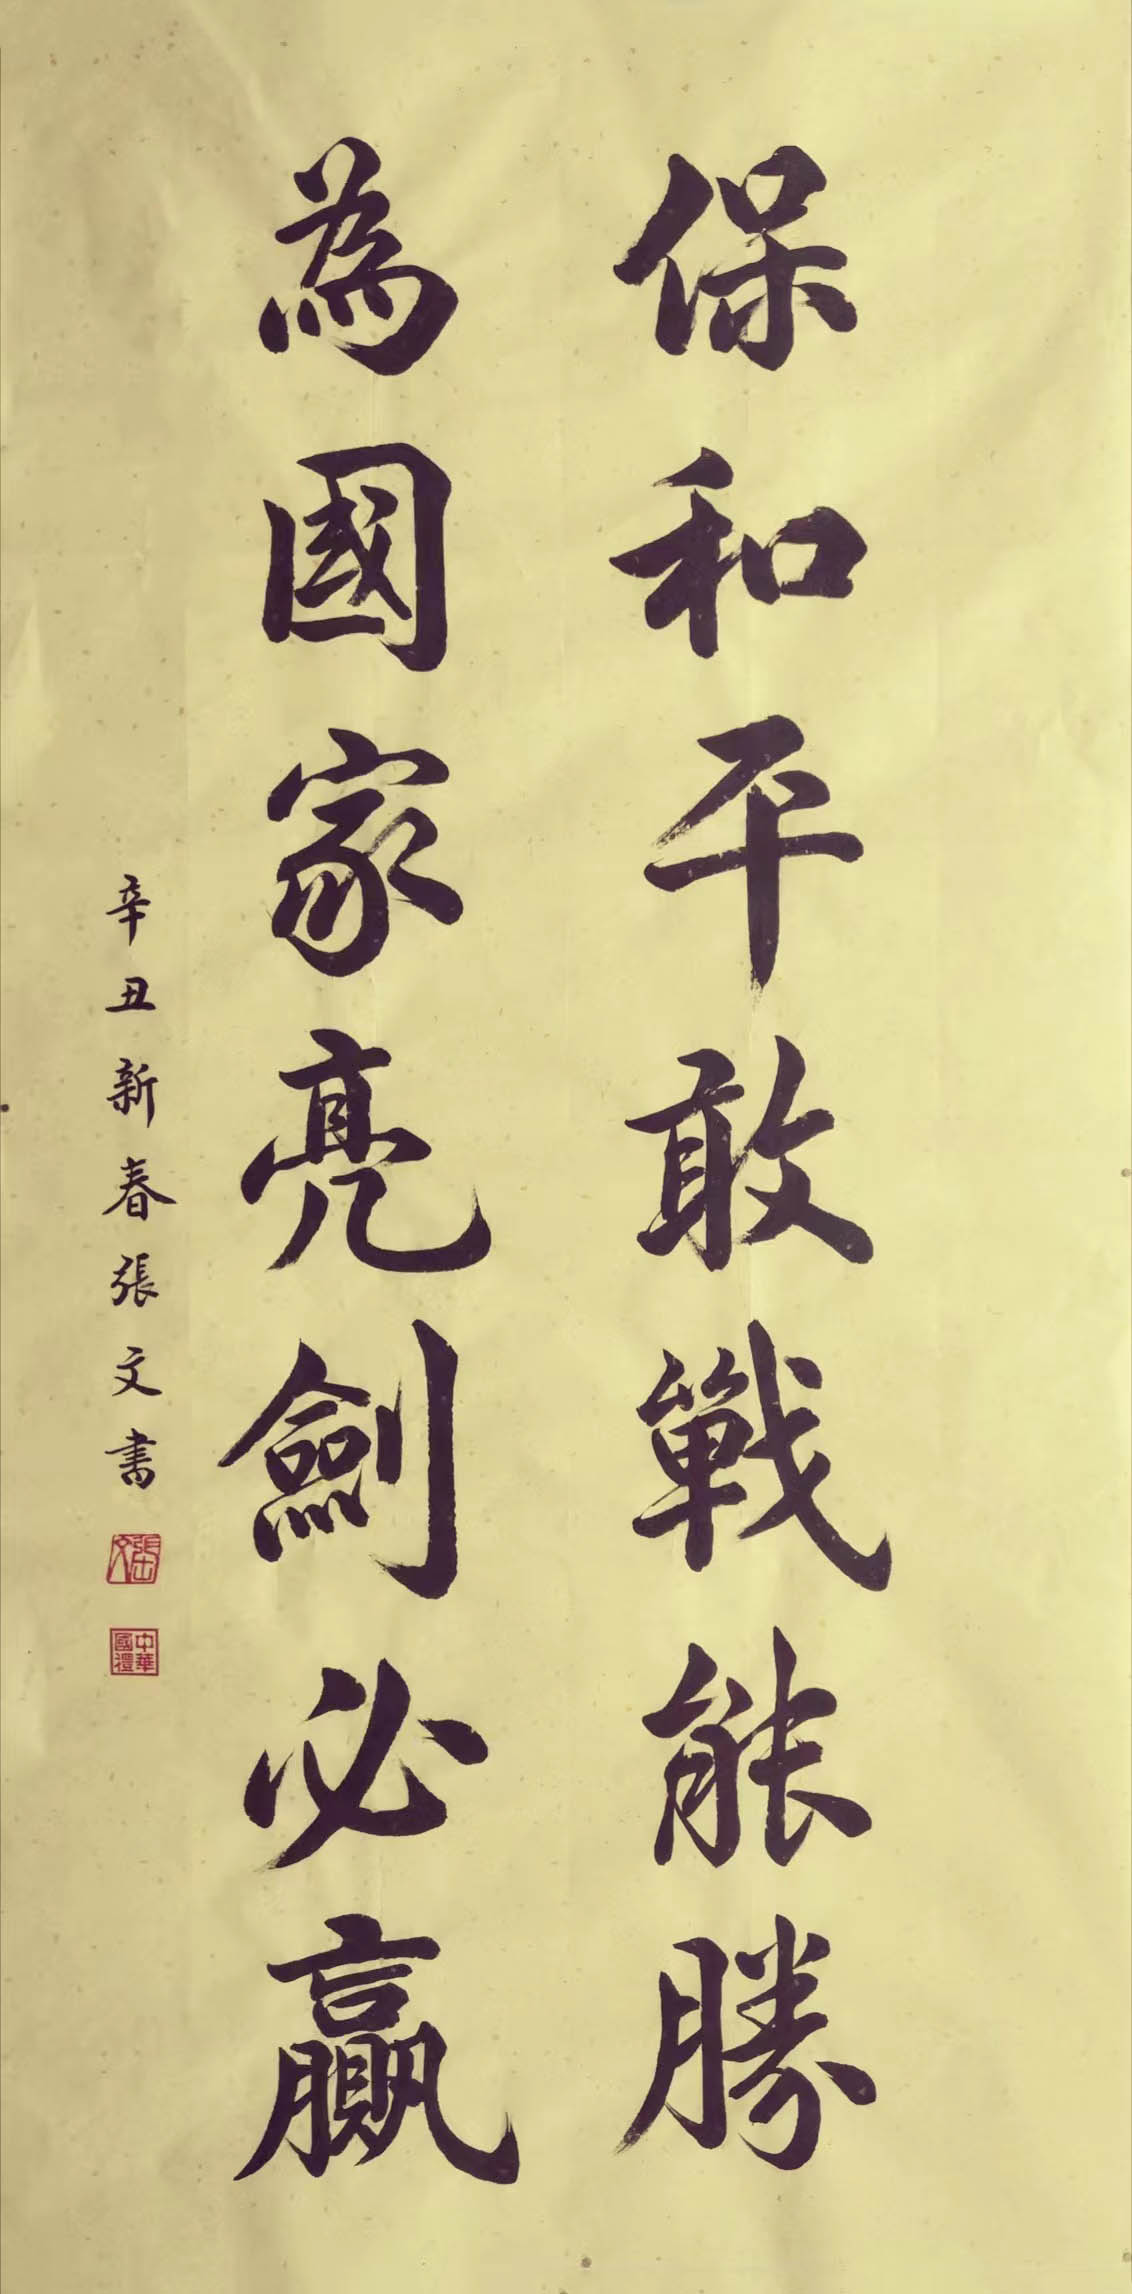 保和平敢戰能勝
為國家亮劍必贏
辛丑新春張文書
中華國禮